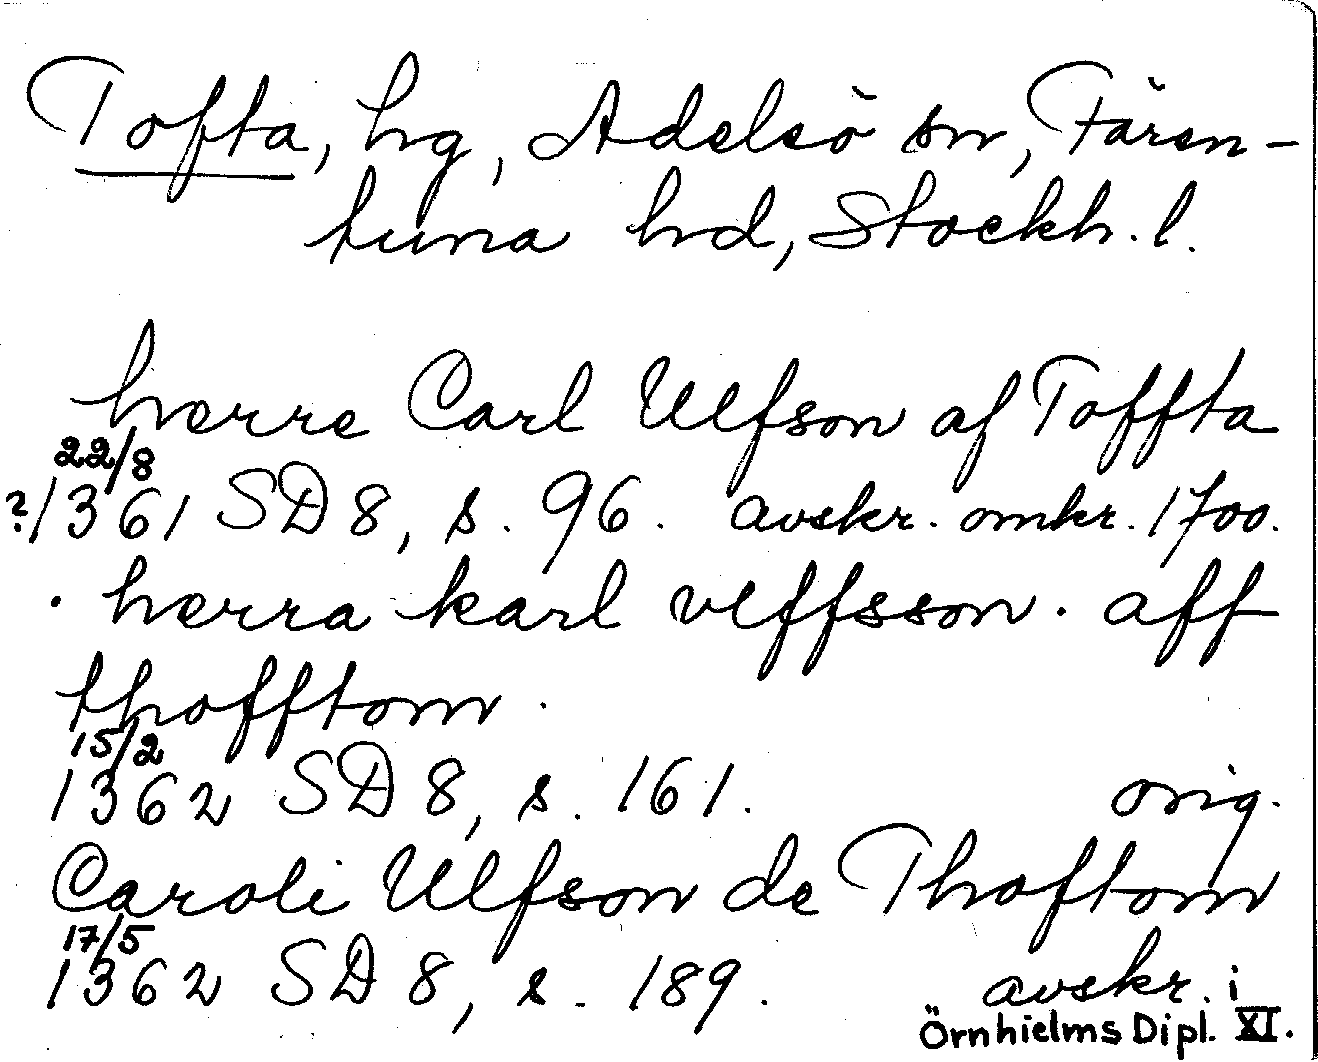 Tofta, hg, Adelsö sn, Fären-
tuna hd, Stockh. l.
herre Carl Ulfson af Toffta
22/8
?1361 SD 8, s. 96. avskr. omkr. 1700.
· herra karl vlffsson · aff
thofftom ·
15/2
1362 SD 8, s. 161. orig.
Caroli Ulfson de Thoftom
17/5
1362 SD 8, s. 189. avskr. i
Örnhielms Dipl. XI.